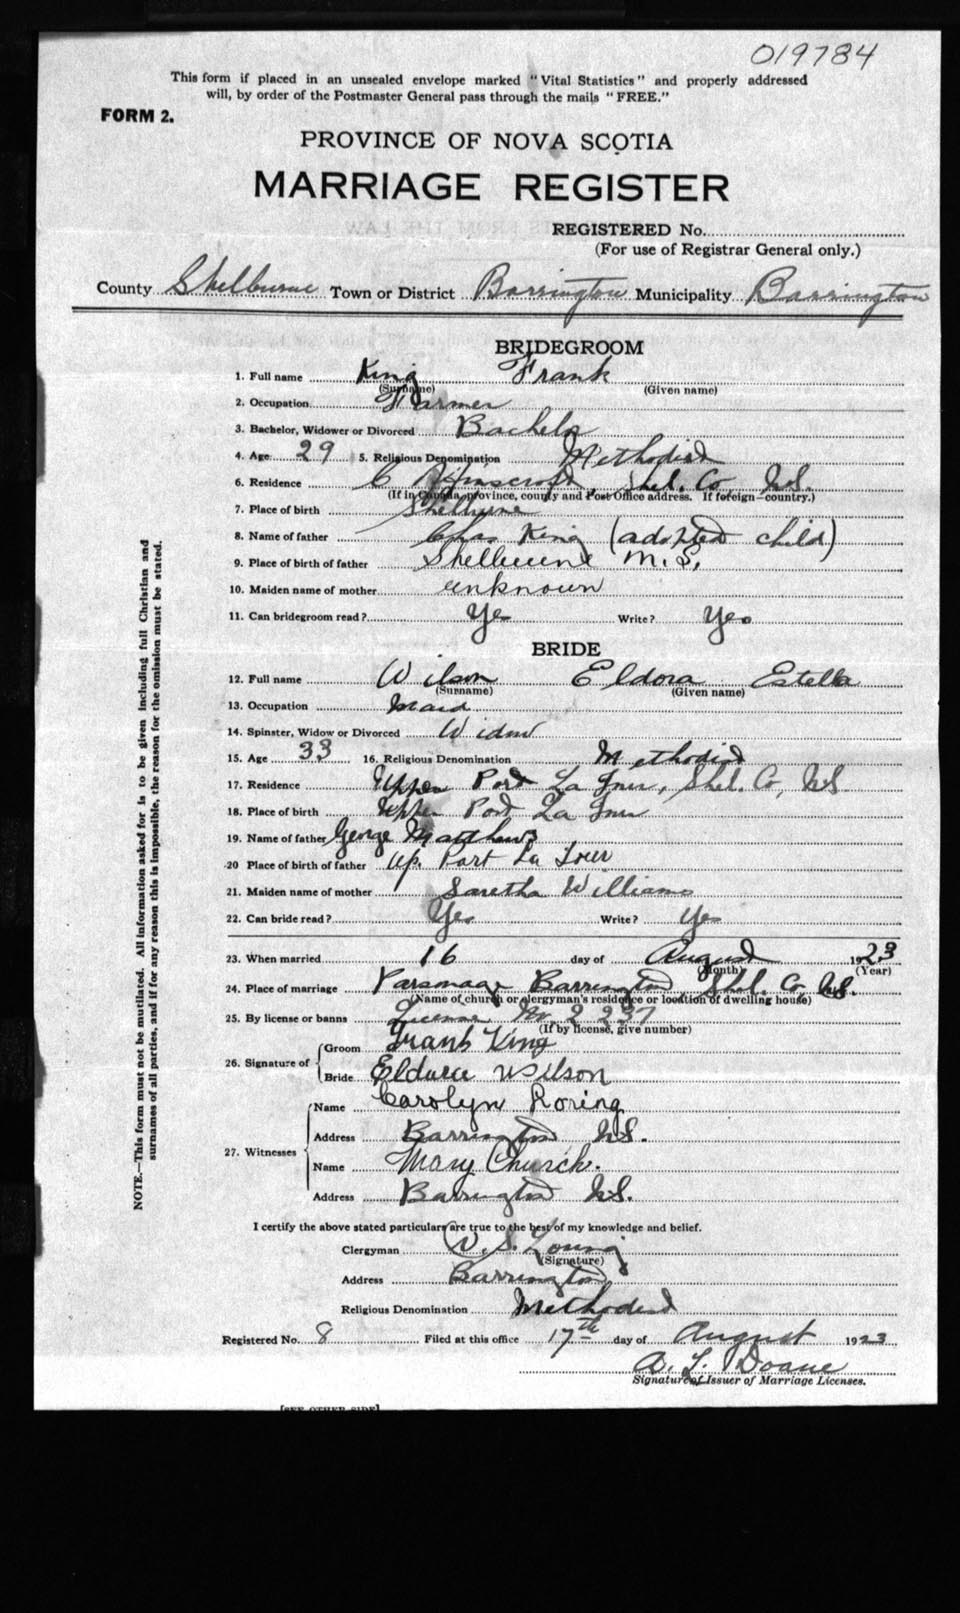 019784
This form if placed in an unsealed envelope marked "Vital Statistics" and properly addressed
will, by order of the Postmaster General pass through the mails "FREE."
FORM 2.
PROVINCE OF NOVA SCOTIA
MARRIAGE REGISTER
REGISTERED No.
(For use of Registrar General only.)
County Shelburne Town or District Barrington Municipality Barrington
BRIDEGROOM
1. Full name King Frank
(Surname) (Given name)
2. Occupation Farmer
3. Bachelor, Widower or Divorced Bachelor
4. Age 29 5. Religious Denomination Methodist
6. Residence Shel. Co N.S.
(If in Canada, province, county and Post Office address. If foreign—country.)
7. Place of birth Shelburne
8. Name of father Chas King (adopted child)
9. Place of birth of father Shelburne N.S.
10. Maiden name of mother unknown
11. Can bridegroom read? Yes Write? Yes
BRIDE
12. Full name Wilson Eldora Estella
(Surname) (Given name)
13. Occupation Maid
14. Spinster, Widow or Divorced Widow
15. Age 33 16. Religious Denomination Methodist
17. Residence Upper Port La Tour, Shel. Co, N.S.
18. Place of birth Upper Port La Tour
19. Name of father George Matthews
20 Place of birth of father Up. Port La Tour
21. Maiden name of mother Saretha Williams
22. Can bride read? Yes Write? Yes
23. When married 16 day of August 1923
(Month) (Year)
24. Place of marriage Parsonage Barrington, Shel. Co, N.S.
(Name of church or clergyman's residence or location of dwelling house)
25. By license or banns License No 2237
(If by license, give number)
26. Signature of Groom Frank King
Bride Wilson
27. Witnesses Name Carolyn Roring
Address Barrington N.S.
Name Mary Church.
Address Barrington N.S.
I certify the above stated particulars are true to the best of my knowledge and belief.
Clergyman S. Young
(Signature)
Address Barrington
Religious Denomination Methodist
Registered No. 8 Filed at this office 17th day of August 1923
A. L. Doane
Signature of Issuer of Marriage Licenses.
[SEE OTHER SIDE]
NOTE.—This form must not be mutilated. All information asked for is to be given including full Christian and
surnames of all parties, and if for any reason this is impossible, the reason for the omission must be stated.